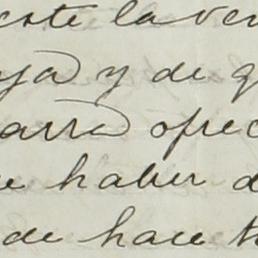 coste la ver
ya y de q
arra ofrec
e haber d
de hace t